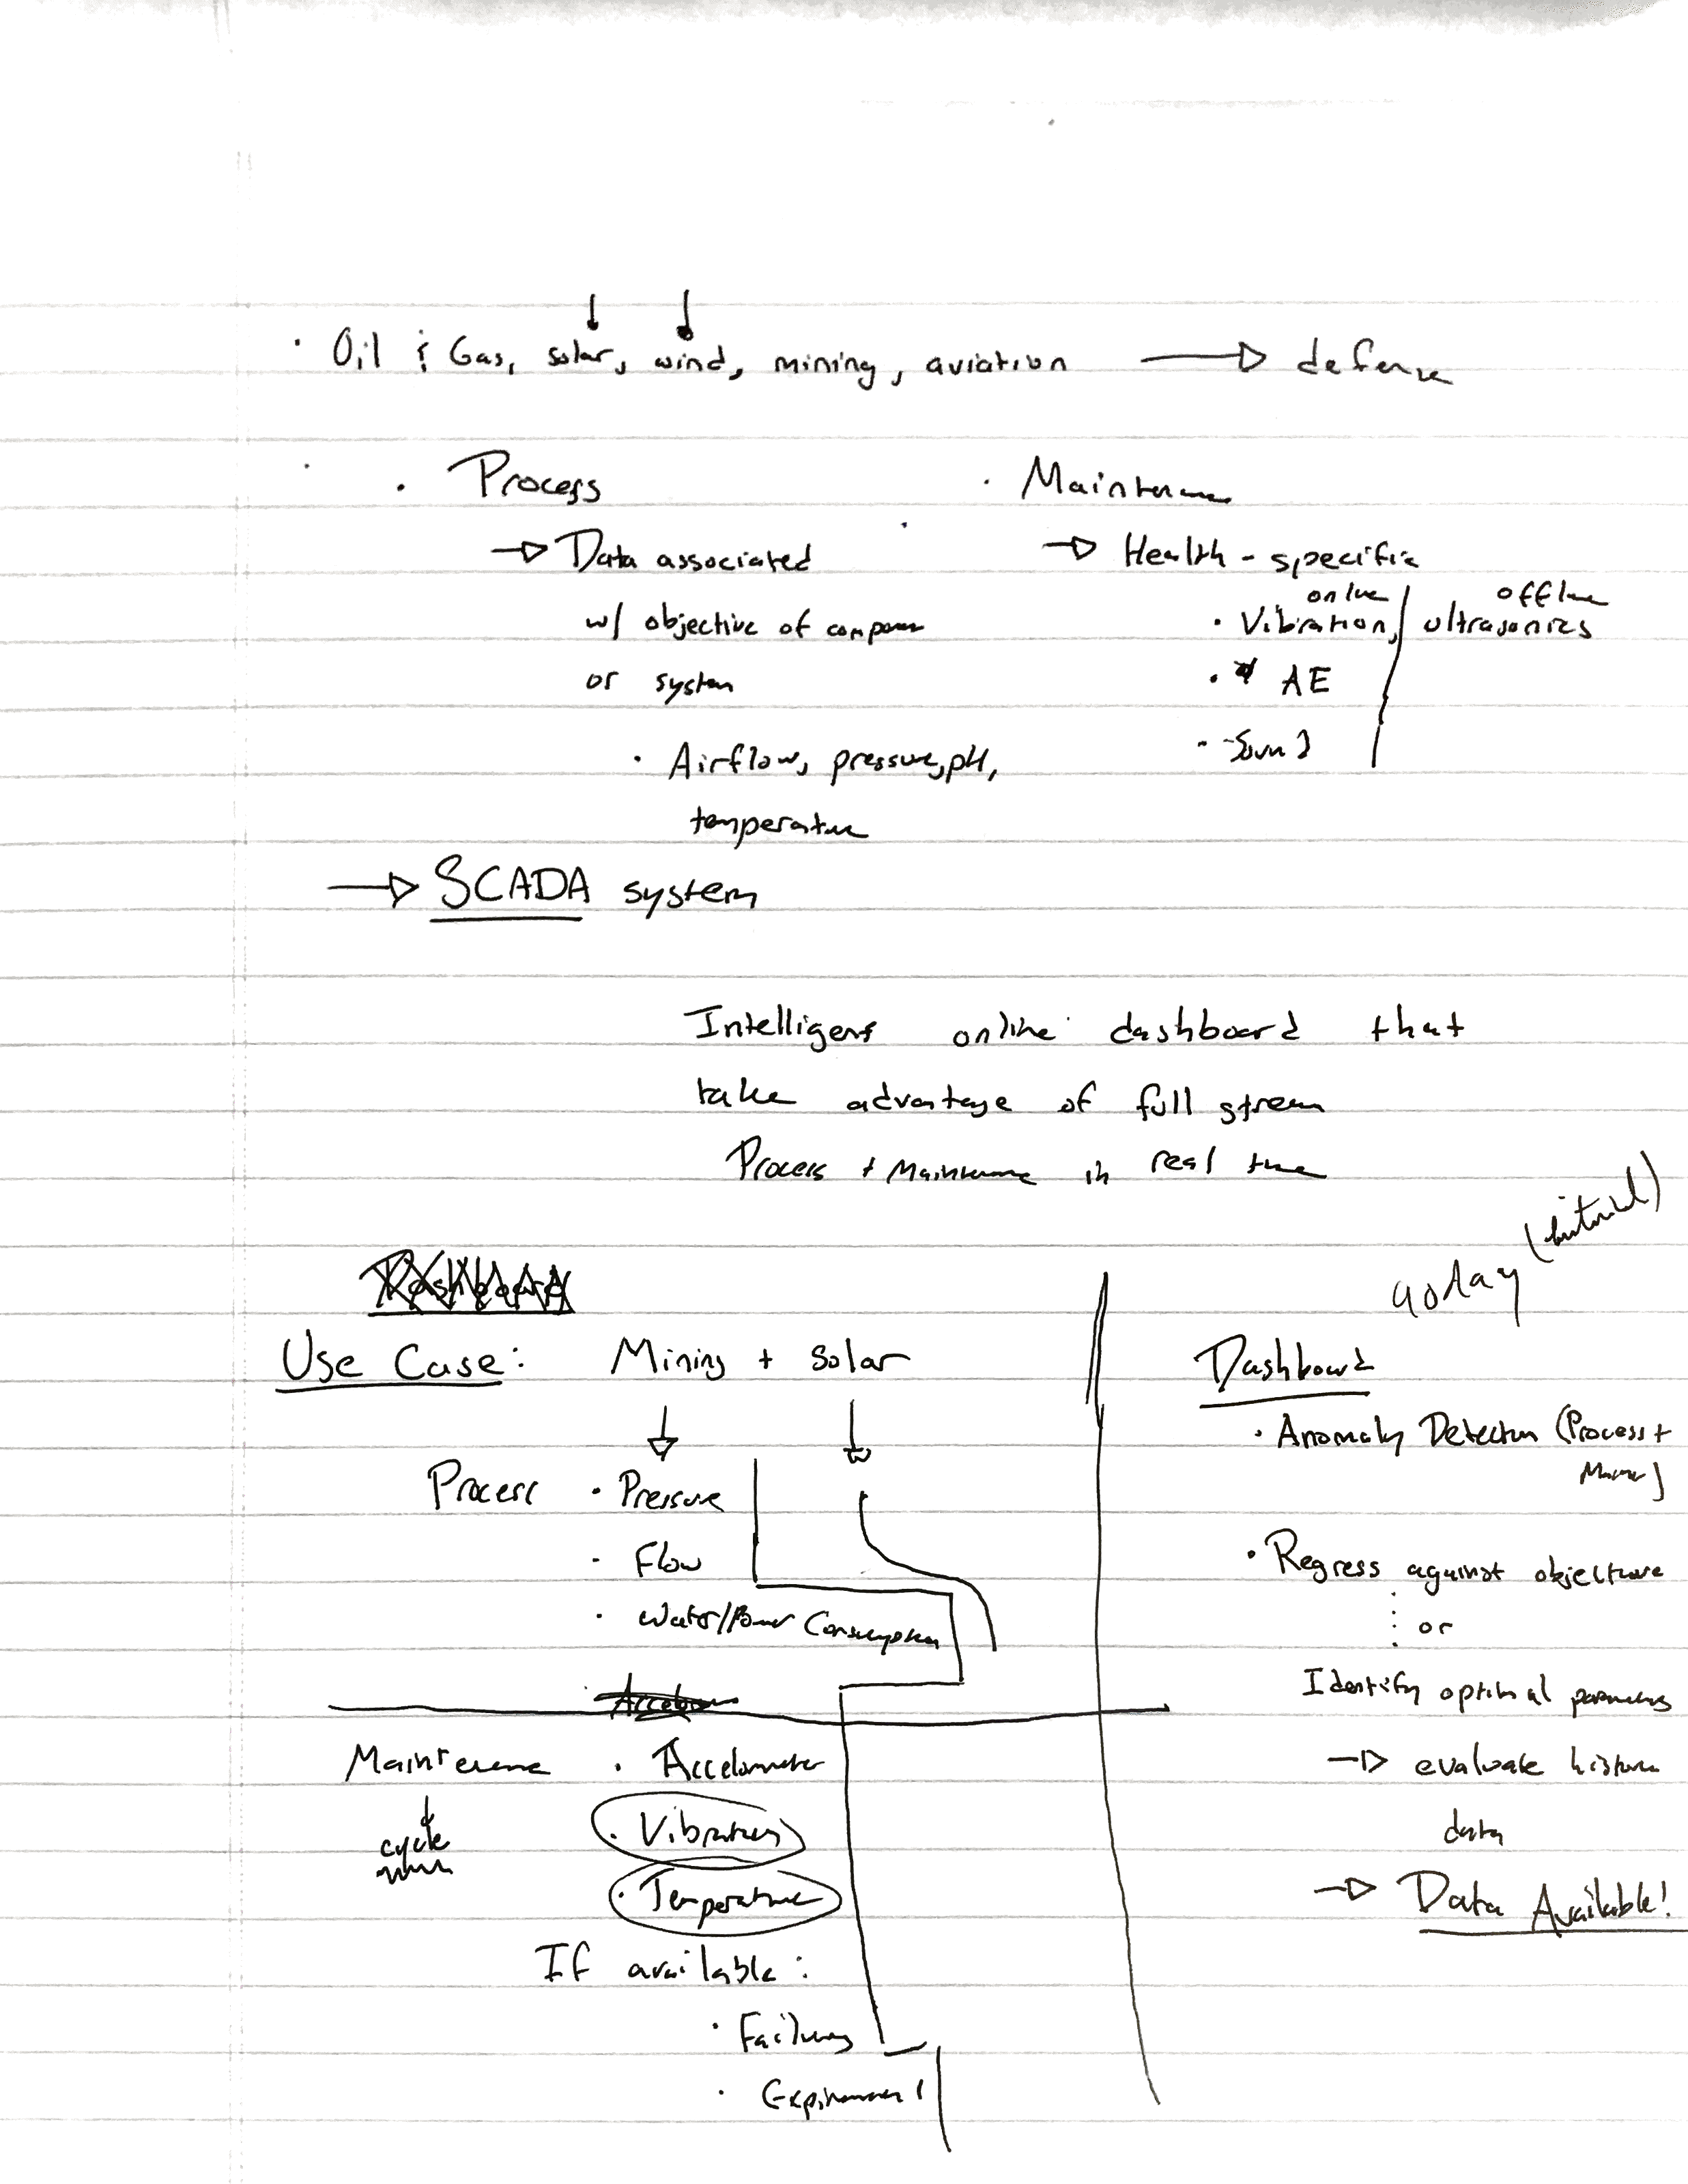 · Oil & Gas, solar, wind, mining, aviation → defense
· Process
→ Data associated
w/ objective of componen
or system
· Airflow, pressure, pH,
temperature
→ SCADA system
· Maintenance
→ Health - specific
online offline
· Vibration, ultrasonics
· AE
· Sound
Intelligent online dashboard that
take advantage of full stream
Process + Maintenance in real time
Dashboard
Use Case: Mining + Solar
Process · Pressure
· Flow
· Water/Power Consumption
Accelero
Maintenence · Accelometer
↓ cycle
· Vibration
· Temperature
If available:
· Failures
90 day
Dashboard
· Anomaly Detection (Process +
· Regress against objective
or
Identify optimal parameters
→ evaluate historic
data
→ Data Available!